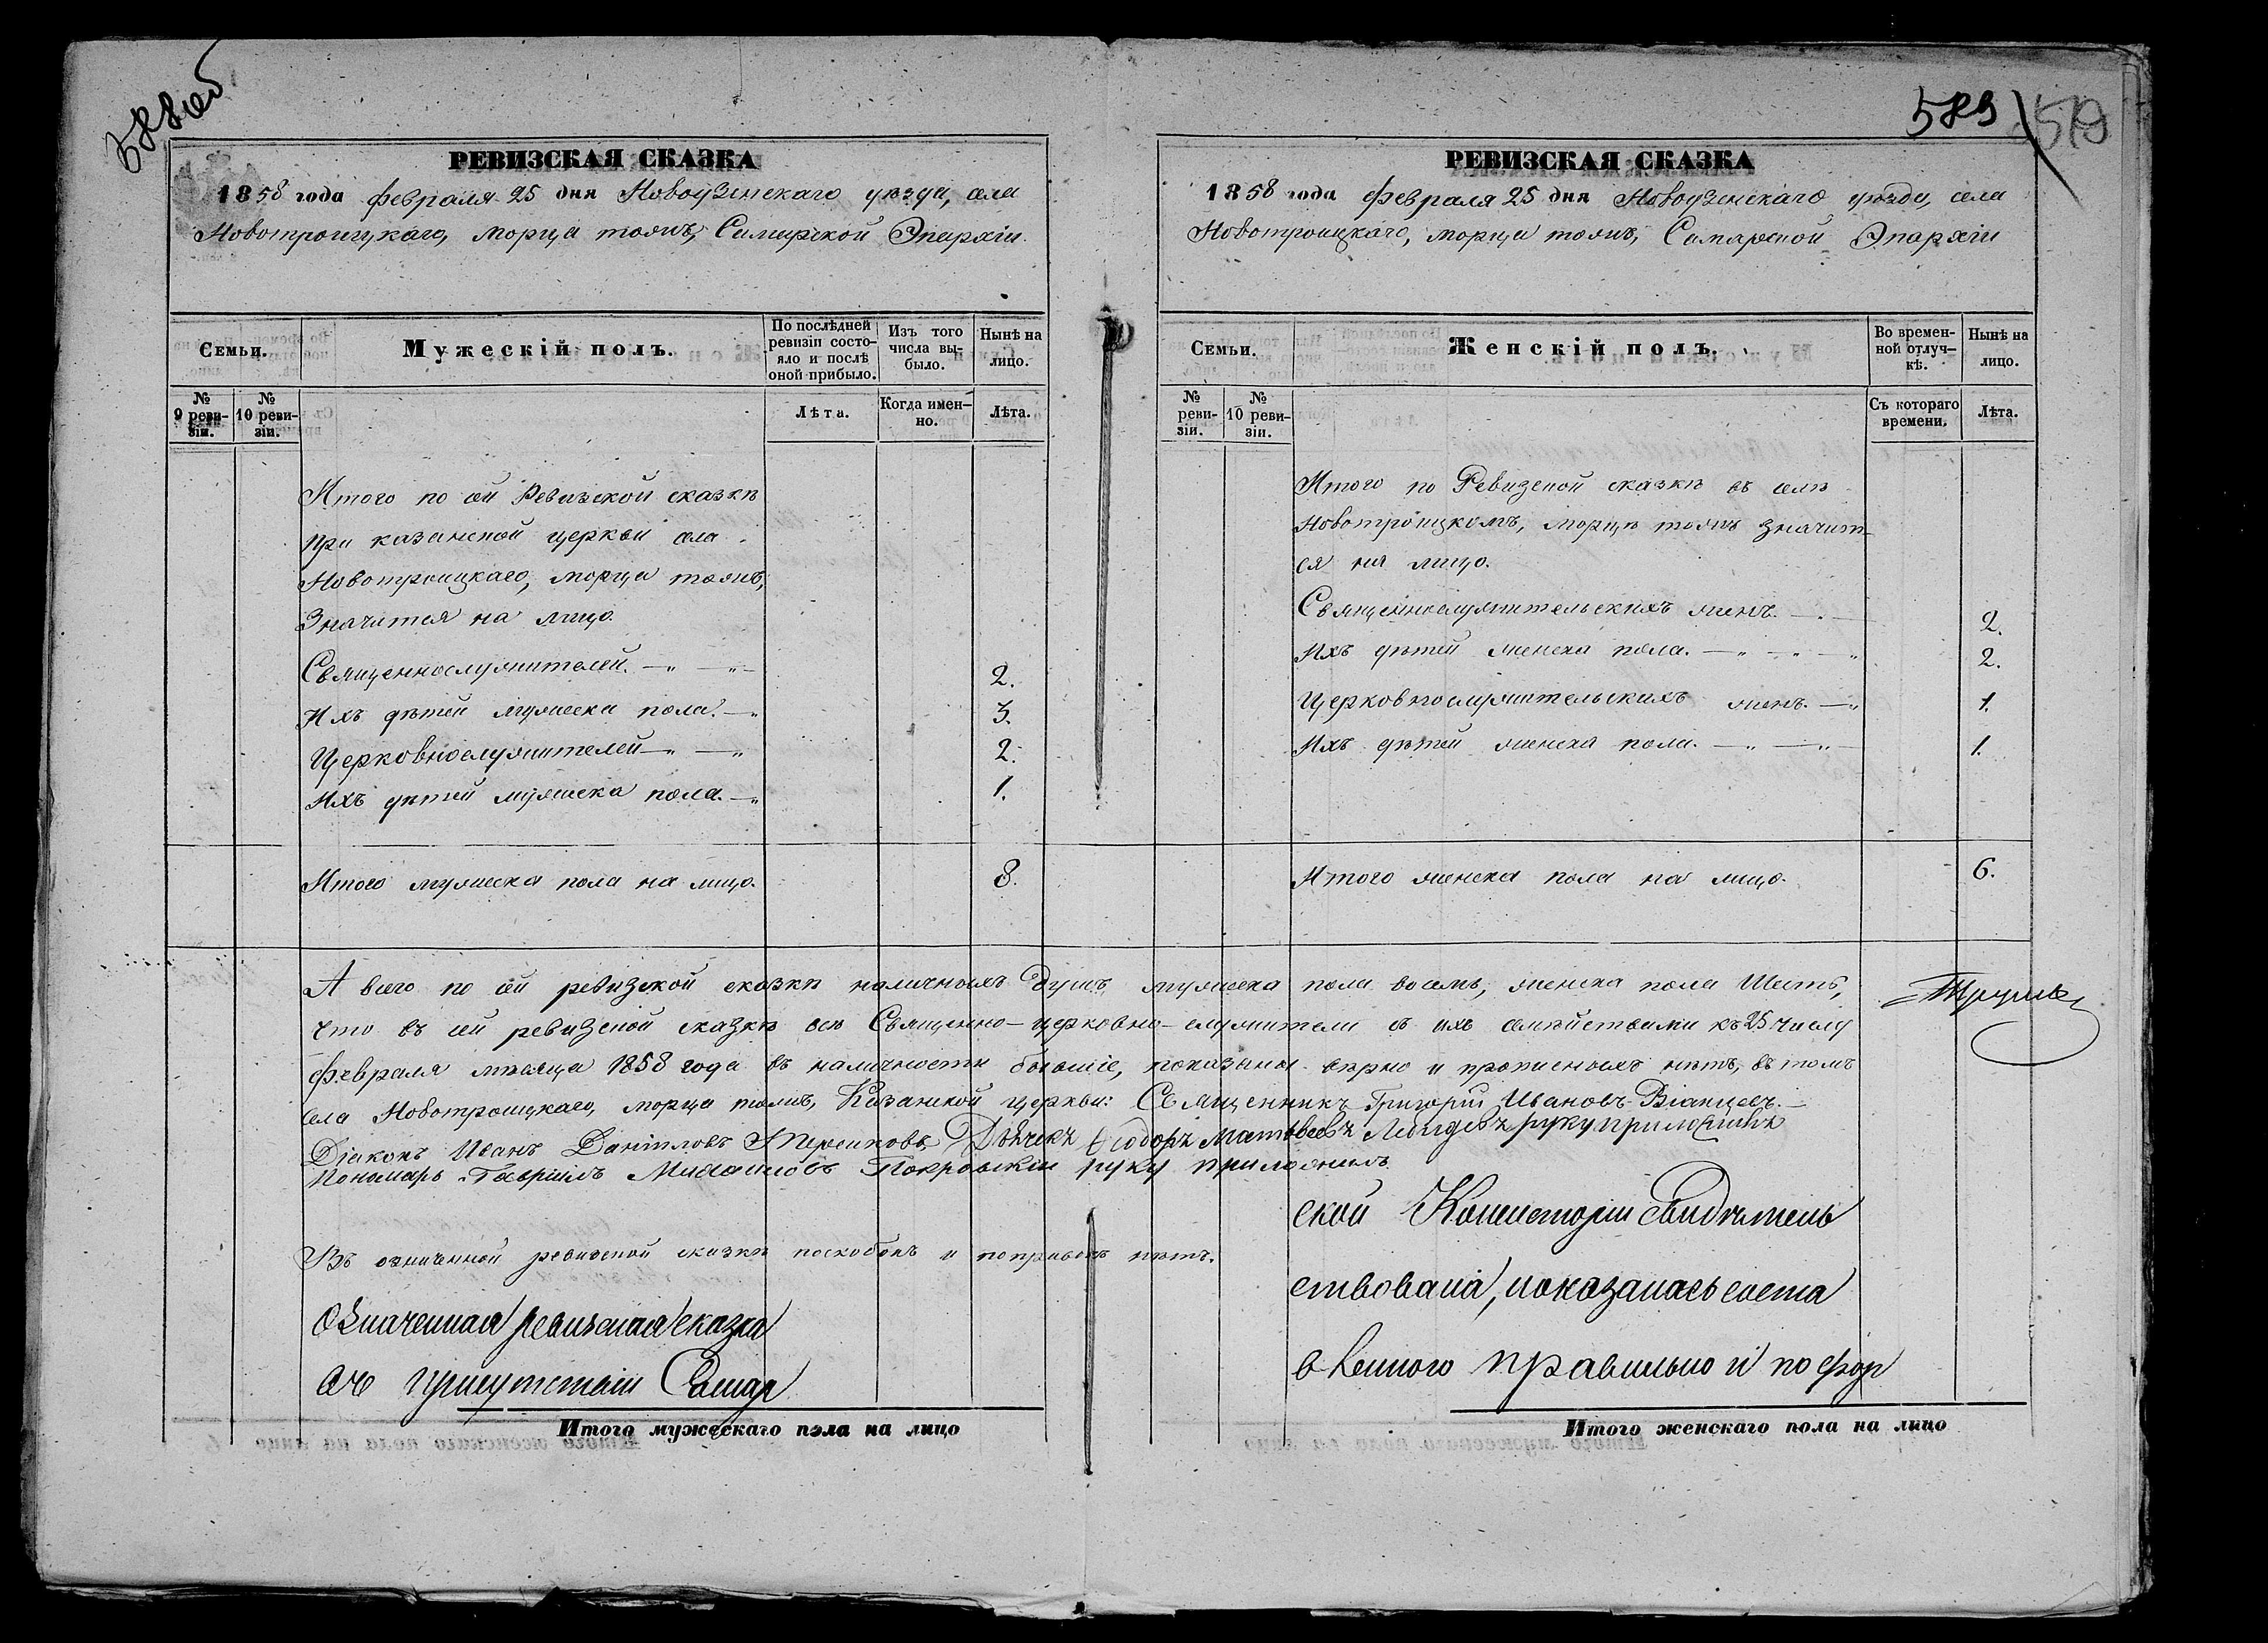 588 об
РЕВИЗСКАЯ СКАЗКА
1858 года Февраля 25 дня Новоузенскаго уѣзда, села
Новотроицкаго, Морца тожъ, Самарской Эпархіи.
Семьи.
Мужескій полъ.
По послѣдней ревизіи состояло и послѣ оной прибыло.
Изъ того числа выбыло.
Нынѣ на лицо.
№ 9 ревизіи.
№ 10 ревизіи.
Лѣта.
Когда именно.
Лѣта.
Итого по сей Ревизской сказкѣ
при казанской церкви села
Новотроицкаго, Морца тожъ,
Значится на лицо.
Священнослужителей. 2.
Ихъ дѣтей мужеска пола. 3.
Церковнослужителей 2.
Ихъ дѣтей мужеска пола. 1.
Итого мужеска пола на лицо. 8.
589
519
РЕВИЗСКАЯ СКАЗКА
1858 года Февраля 25 дня Новоузенскаго уѣзда, села
Новотроицкаго, Морца тожъ, Самарской Эпархіи
Семьи.
Женскій полъ.
Во временной отлучкѣ.
Нынѣ на лицо.
№ ревизіи.
№ 10 ревизіи.
Съ котораго времени.
Лѣта.
Итого по Ревизской сказкѣ въ селѣ
Новотроицкомъ, Морцѣ тожъ значит-
ся на лицо.
Священнослужительскихъ женъ. 2.
Ихъ дѣтей женска пола. 2.
Церковнослужительскихъ женъ. 1.
Ихъ дѣтей женска пола. 1.
Итого женска пола на лицо. 6.
А всего по сей ревизской сказкѣ наличныхъ душъ мужеска пола восемь, женска пола Шесть,
что въ сей ревизской сказкѣ всѣ Священно-церковно-служители съ ихъ семѣйствами къ 25 числу
Февраля мѣсяца 1858 года въ наличности бывшіе, показаны вѣрно и прописныхъ нѣтъ, въ томъ
села Новотроицкаго, Морца тожъ, Казанской церкви: Священникъ Григорій Ивановъ
Діаконъ Иванъ Даніиловъ Дьячекъ Ѳеодоръ Матвѣевъ руку приложилъ
Пономарь Гавріилъ Михайловъ Покровскій руку приложилъ.
Въ означенной ревизской сказкѣ поскобокъ и поправокъ нѣтъ.
Означенная ревизская сказка
въ присутствіи Самар
ской Консисторіи свидѣтель
ствована, показалась соста
вленною правильно и по фор
Итого мужескаго пола на лицо
Итого женскаго пола на лицо